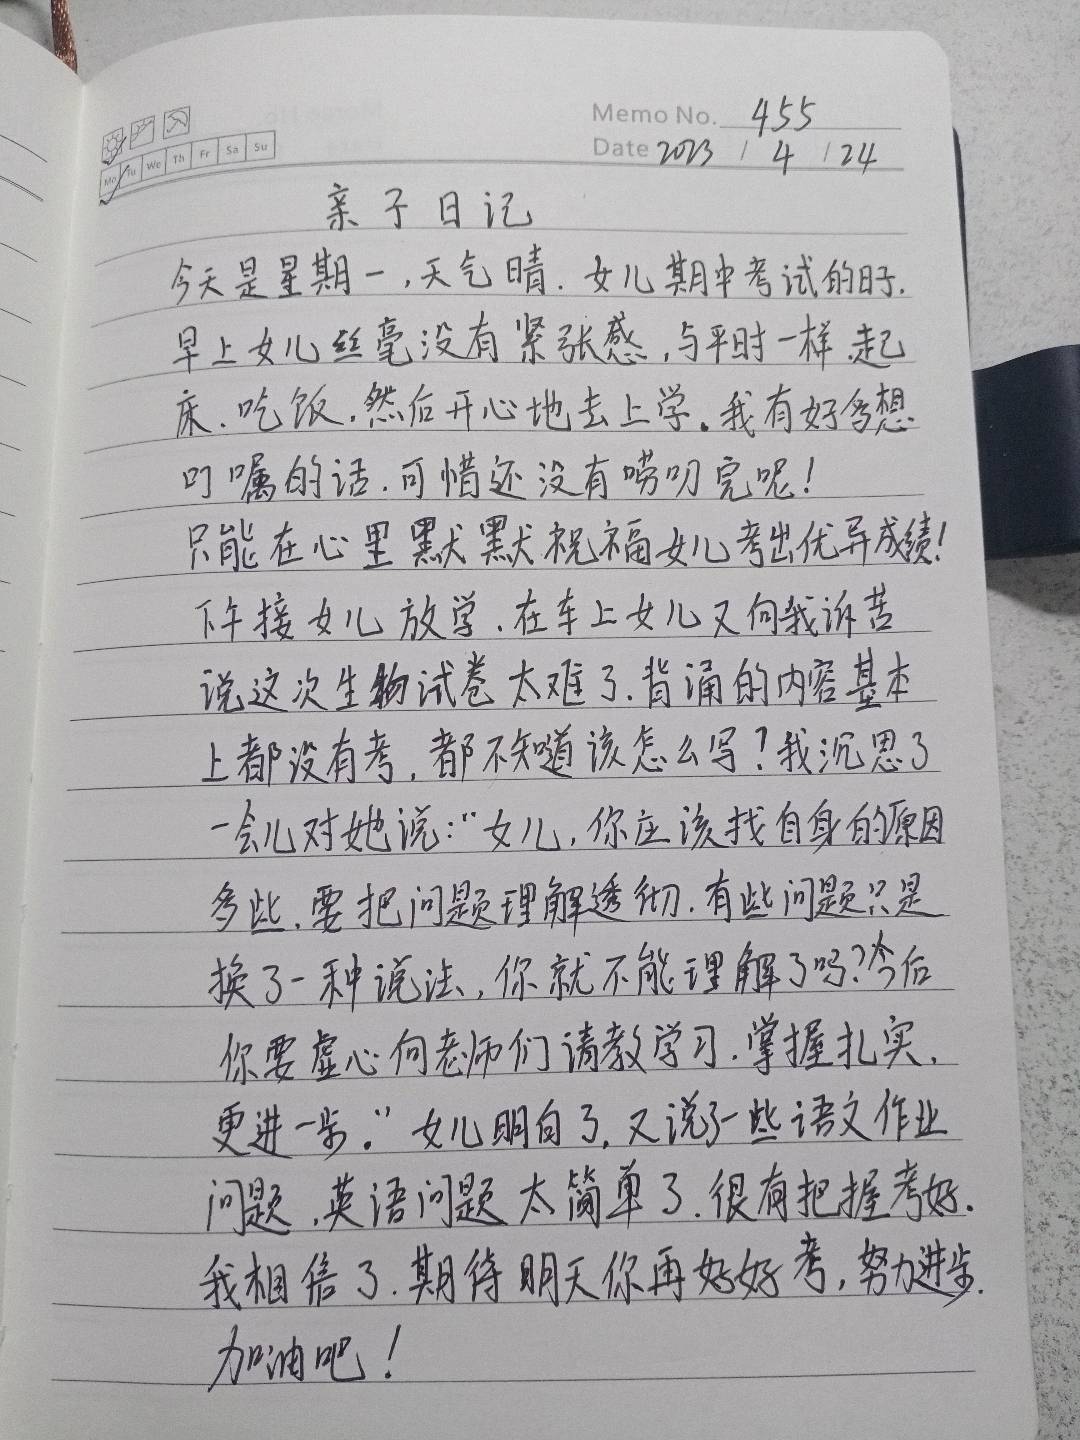 Memo No. 455
Date 2023 / 4 / 24
Mo Tu We Th Fr Sa Su
亲子日记
今天是星期一,天气晴.女儿期中考试的日子.
早上女儿丝毫没有紧张感,与平时一样.起
床、吃饭.然后开心地去上学。我有好多想
叮嘱的话.可惜还没有唠叨完呢!
只能在心里默默祝福女儿考出优异成绩!
下午接女儿放学.在车上女儿又向我诉苦
说这次生物试卷太难了.背诵的内容基本
上都没有考,都不知道该怎么写?我沉思了
一会儿对她说:"女儿,你应该找自身的原因
多些.要把问题理解透彻.有些问题只是
换了一种说法,你就不能理解了吗?今后
你要虚心向老师们请教学习.掌握扎实.
更进一步."女儿明白了.又说了一些语文作业
问题.英语问题太简单了.很有把握考好.
我相信了.期待明天你再好好考,努力进步.
加油吧!